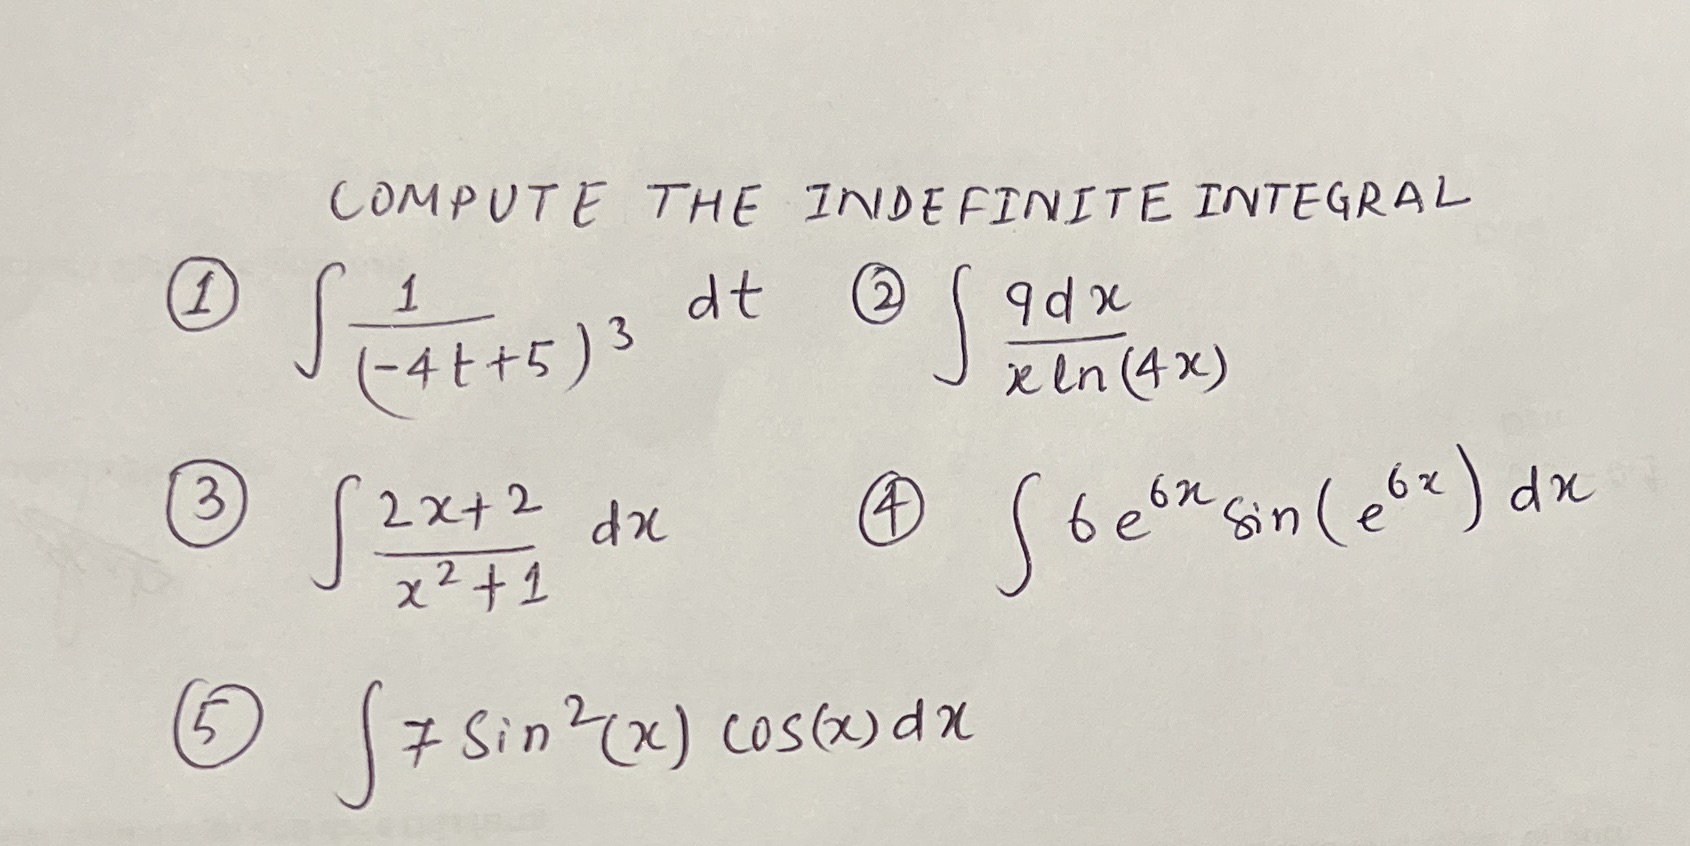 COMPUTE THE INDEFINITE INTEGRAL
① ∫ 1/(-4t+5)³ dt ② ∫ 9dx/(x ln(4x))
③ ∫ (2x+2)/(x²+1) dx ④ ∫ 6e^(6x) sin(e^(6x)) dx
⑤ ∫ 7 sin²(x) cos(x) dx